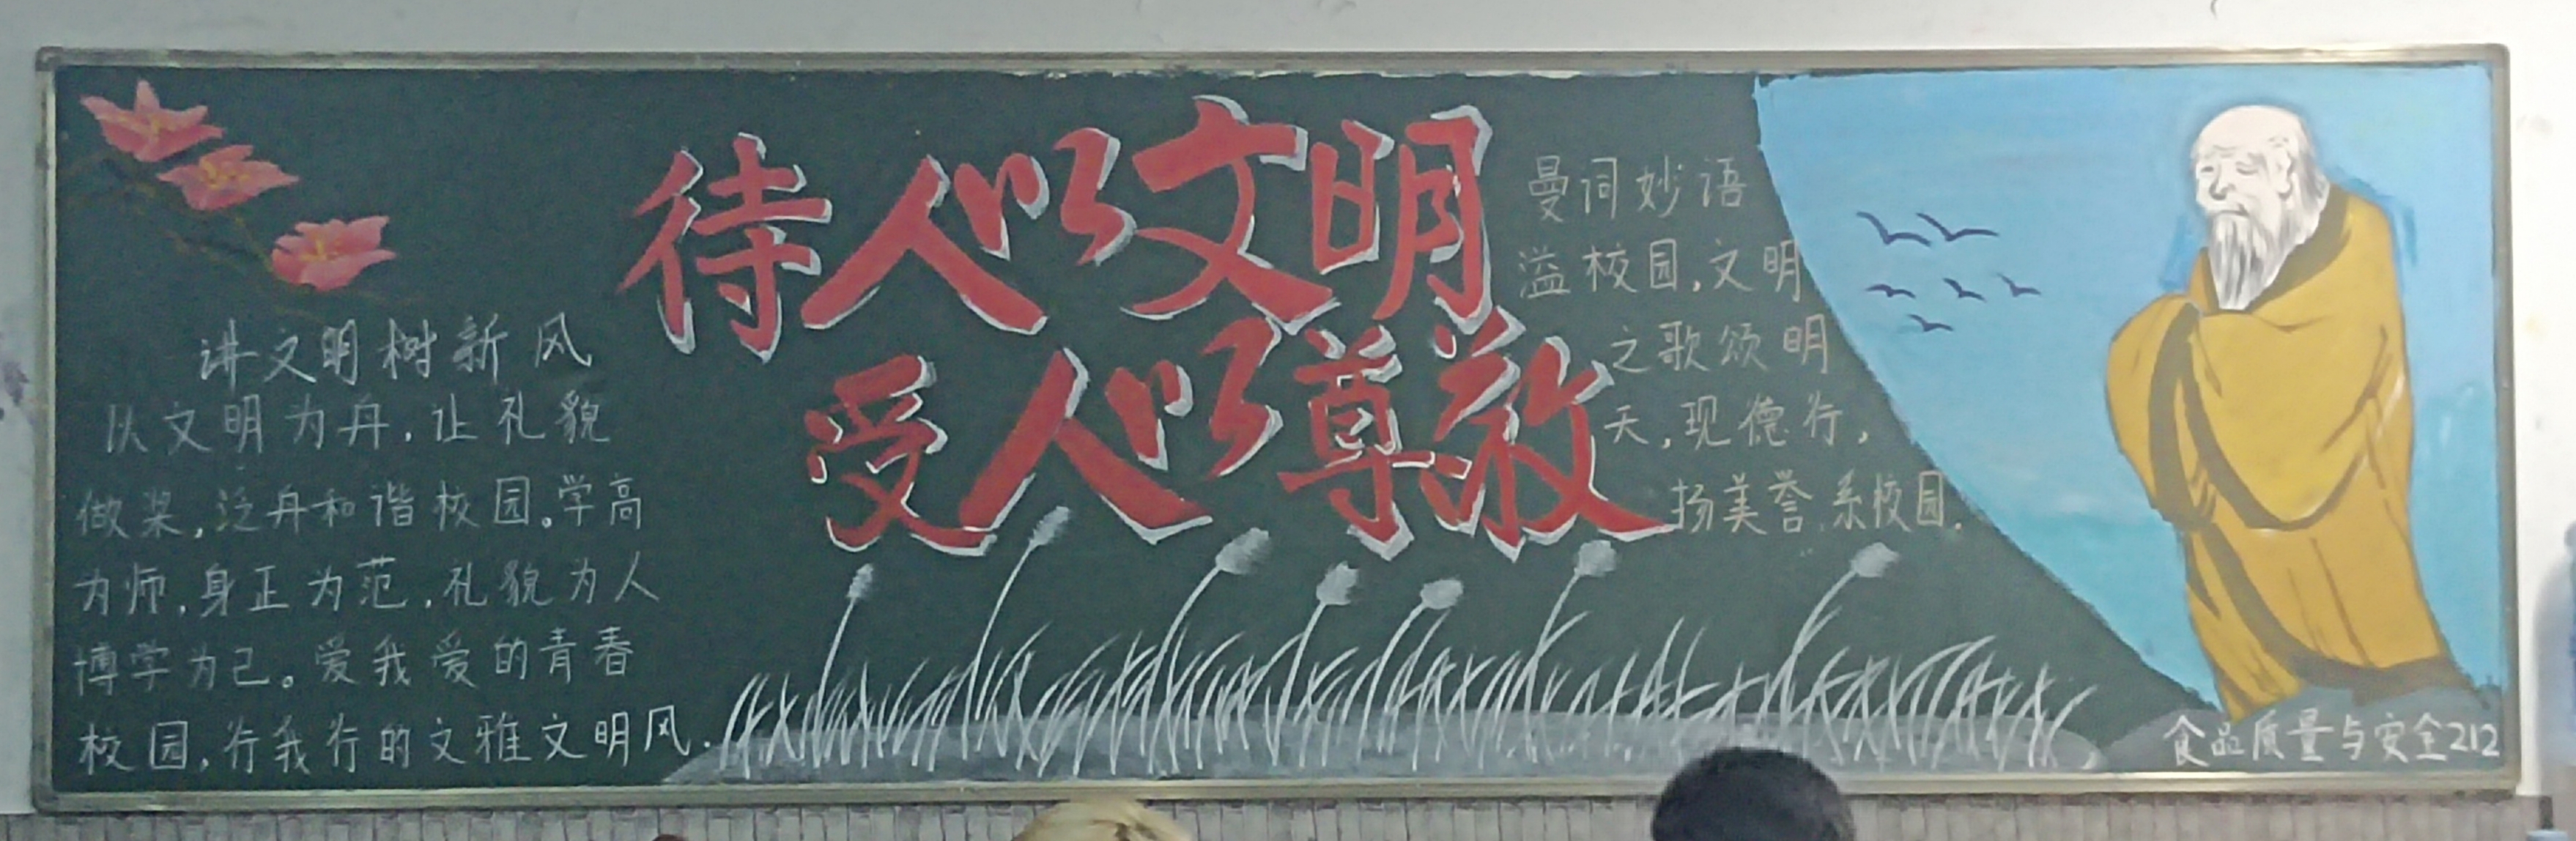 待人以文明
受人以尊敬
讲文明树新风
以文明为舟，让礼貌
做桨，泛舟和谐校园。学高
为师，身正为范，礼貌为人
博学为己。爱我爱的青春
校园，行我行的文雅文明风.
曼词妙语
溢校园，文明
之歌颂明
天，现德行，
扬美誉，系校园.
食品质量与安全212